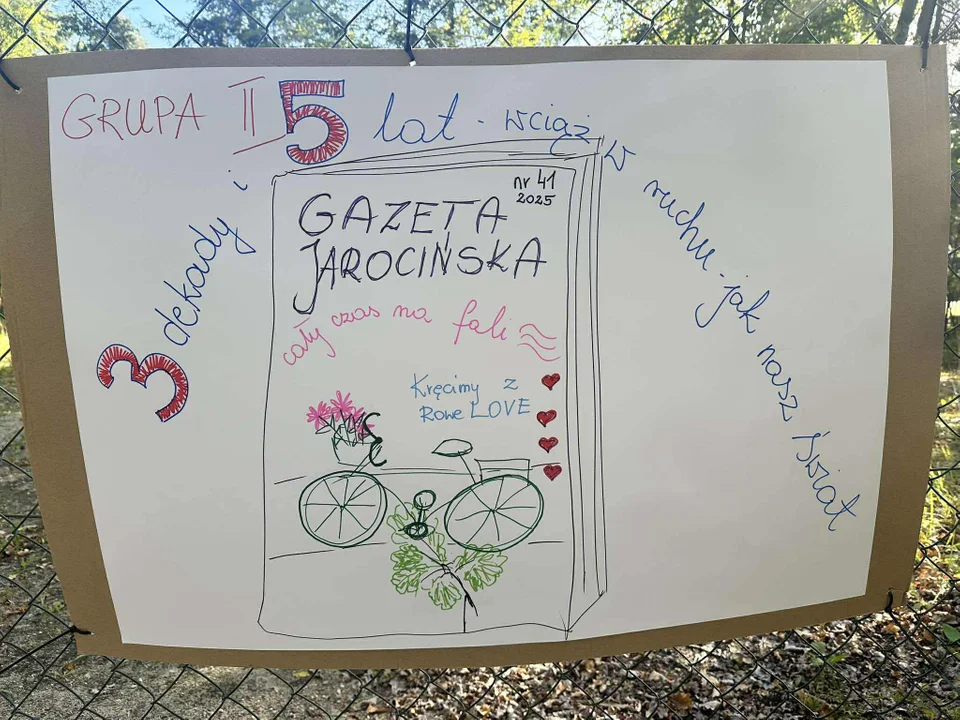 GRUPA II
3 dekady i 5 lat - wciąż w ruchu - jak nasz Świat
nr 41
2025
GAZETA
JAROCIŃSKA
cały czas na fali
Kręcimy z
Rowe LOVE